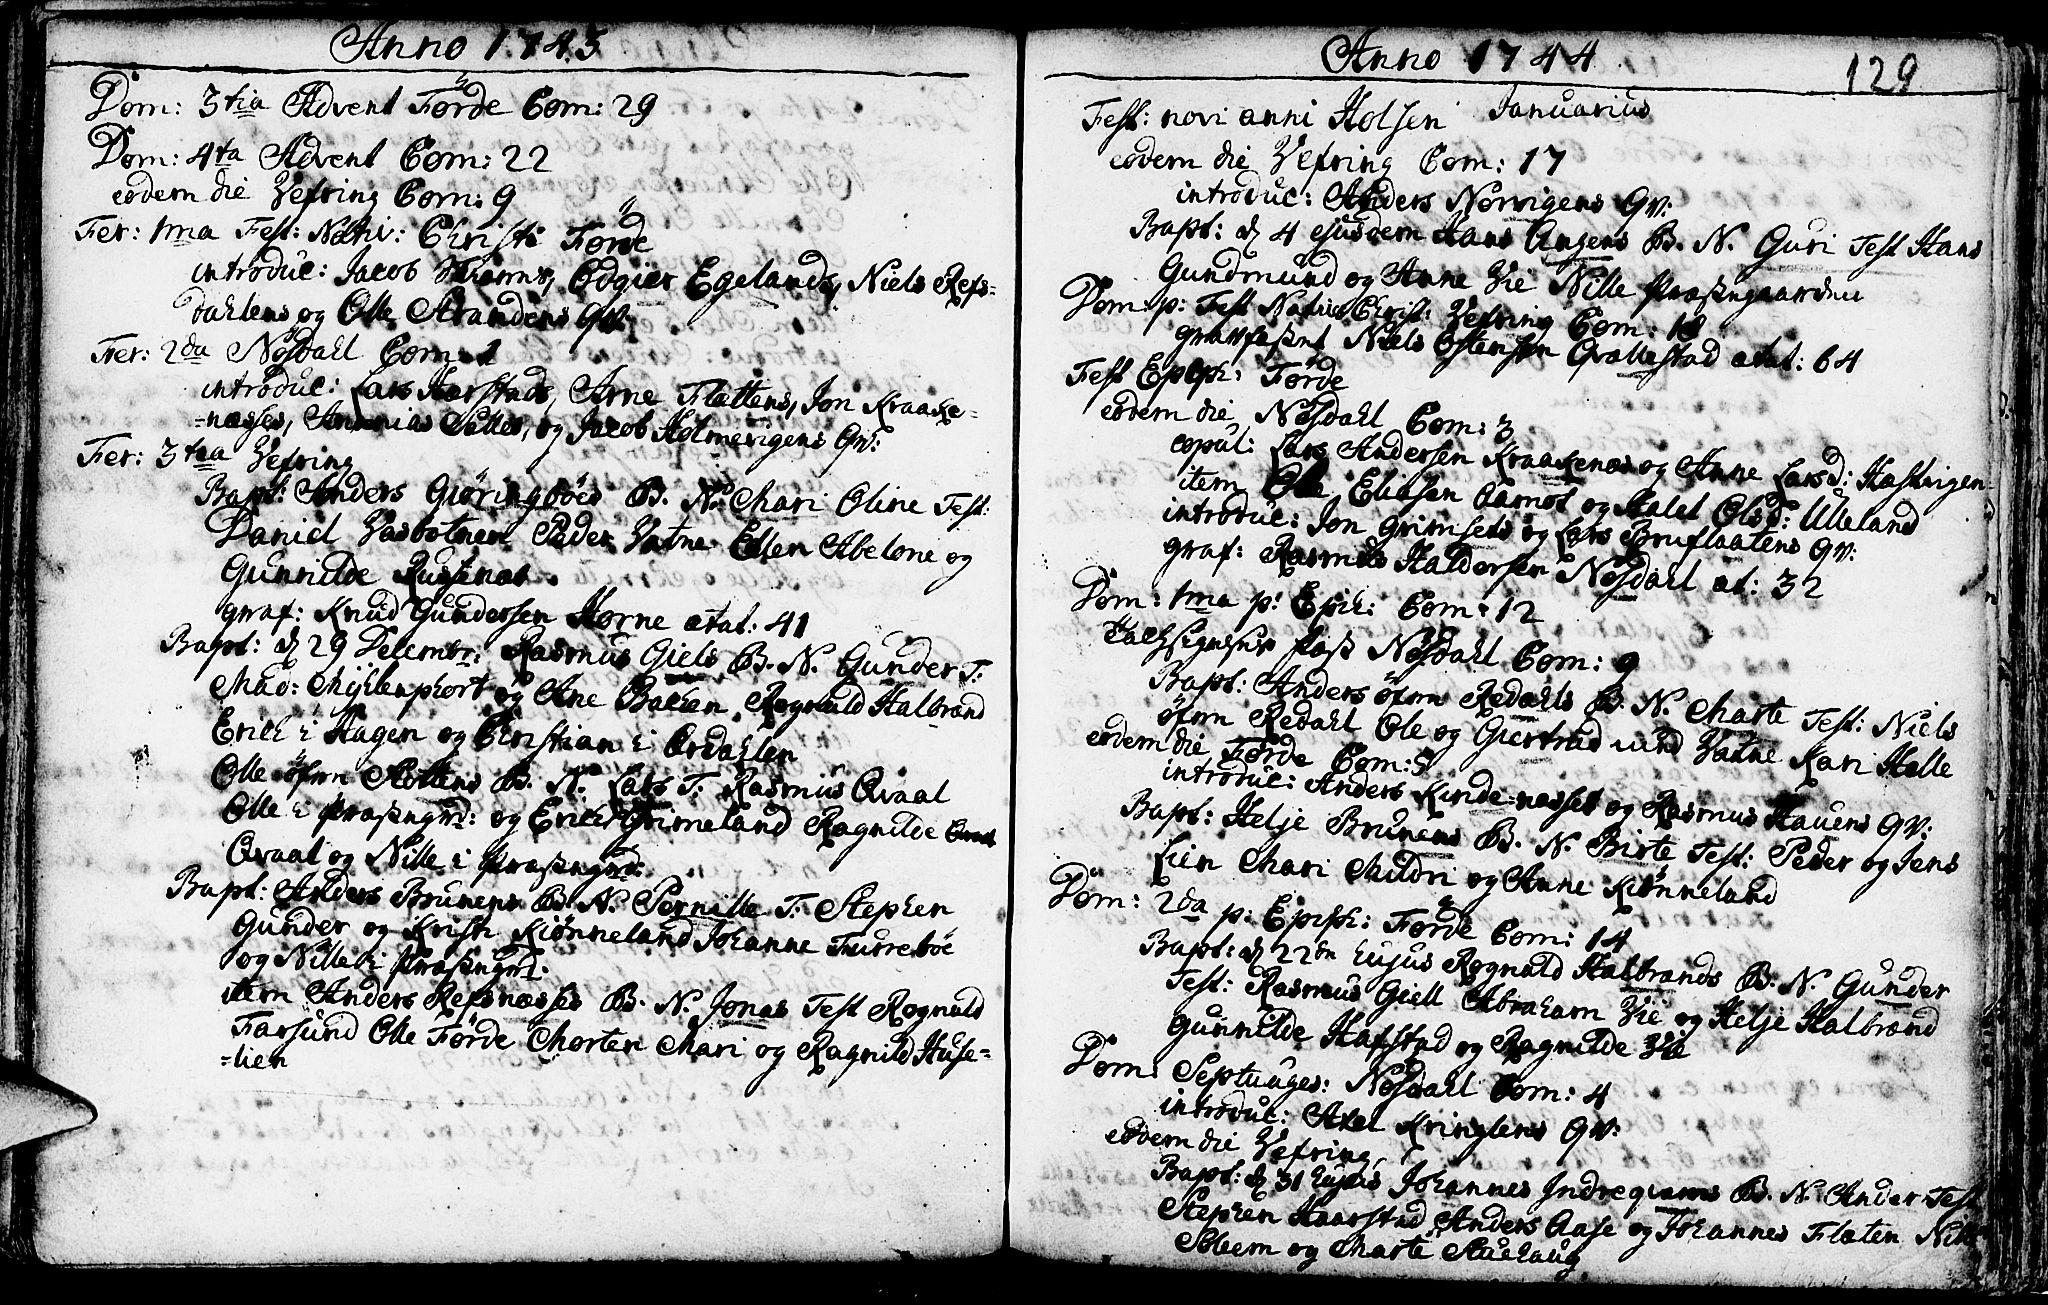 Anno 1743
Dom: 3tia Advent Förde Com: 29
Dom: 4ta Advent Com: 22
eodem die Vefring Com: 9
Fer: 1ma Fest: Nativ: Christi Förde
introduc: Jacob Odgier Egelands, Niels Refs-
dahlens og Olle Strandens Qv:
Fer: 2da Nösdahl Com: 1
introduc: Lars Harstads, Arne Flættens, Jon Kraake-
-næsses, Ananias og Jacob Holmevigens Qv:
Fer: 3tia Vefring
Bapt: Anders Giöringböes B. N. Mari Oline Test:
Daniel Vasbotnen Peder Vatne Ellen Abelone og
Gunnilde
graf: Knud Gundersen Horne ætat: 41
Bapt: d 29 Decembr: Rasmus Giels B. N. Gunder T:
Mad: Myklenphort og Ane Backen, Rognald Halbrand
Erich i Hagen og Christian i Ordahlen
Olle öfvn Slottens B. N. Lars T. Rasmus Qvaal
Olle i Præstngrd: og Erich Grimeland Ragnilde
Qvaal og Nille i Præstngrd:
Bapt: Anders Brunens B. N. Pernille T: Stephen
Gunder og Kristi Kiönneland Johanne Furreböe
og Nille i Præstngrd:
item Anders Refsnæsses B. N. Jonas Test Rognald
Farsund Olle Förde Morten Mari og Ragnild Huse-
-lien
Anno 1744
129
Fest: novi anni Holsen Januarius
eodem die Vefring Com: 17
introduc: Anders Norvigens Qv:
Bapt: d 4 ejusdem Hans Angens B. N. Guri Test Hans
Gundmund og Anne Vie Nille Præstngaarden
Dom: p: Fest Nativ: Christ: Vefring Com: 18
graffæstet Niels Ostensen Qvallestad ætat: 64
Fest Epiph: Förde
eodem die Nösdahl Com: 3
copul: Lars Andersen Kraakenæs og Anne Larsd: Hæstvigen
item Ole Eliasen og Malet Olsd: Ulleland
introduc: Jon Grimsets og Lars Bruflaatens Qv:
graf: Rasmus Haldorsen Nösdahl æt: 32
Dom: 1ma p: Epiph: Com: 12
Nösdahl Com: 9
Bapt: Anders öfvn Redahls B. N. Marte Test: Niels
öfvn Redahl Ole og Giertrud Vatne Kari Helle
eodem die Förde Com: 5
introduc: Anders Kinde-næsses og Rasmus Hauens Qv:
Bapt: Helje Brunens B. N. Birte Test: Peder og Jens
Lien Mari Mildri og Anne Kiönneland
Dom: 2da p: Epiph: Förde Com: 14
Bapt: d 22dn hujus Rognald Halbrands B. N. Gunder
Test: Rasmus Giell Abraham Vie og Helje Halbrand
Gunnilde Hafstad og Ragnilde Vie
Dom: Septuages: Nösdahl Com: 4
introduc: Axel Kringlens Qv:
eodem die Vefring
Bapt: d 31 hujus Johannes Indreqvams B. N. Ander Test
Stephen Haarstad Anders Aase og Johannes Flæten Nille
Soleem og Marte Stuehaug